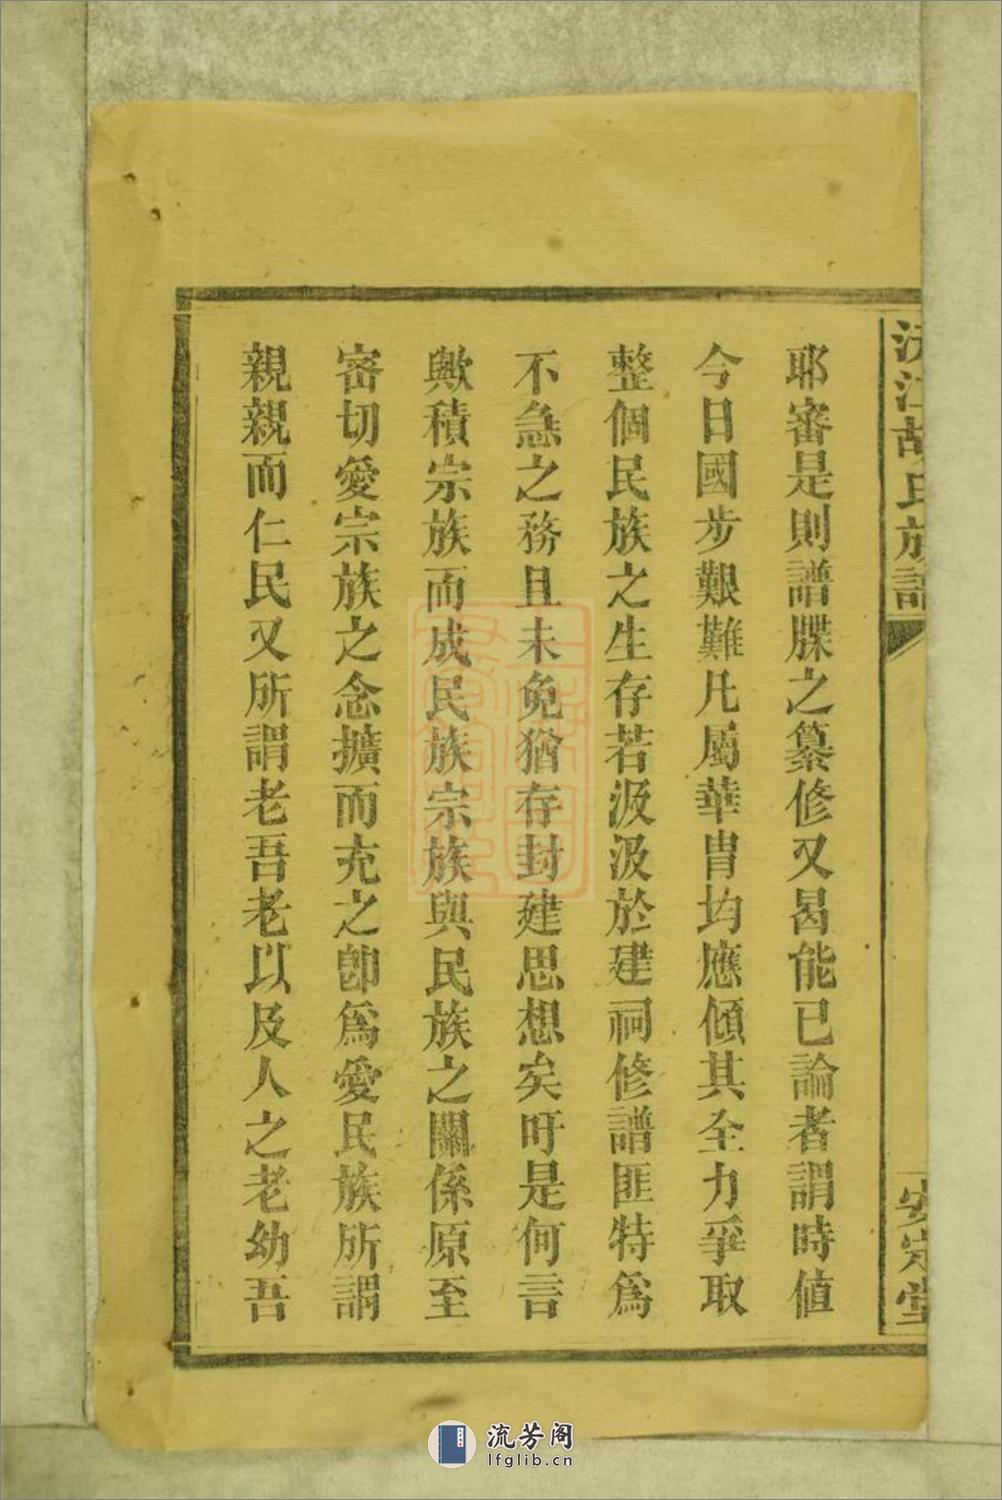 江胡氏族譜
安定堂
耶審是則譜牒之纂修又曷能已論者謂時值
今日國步艱難凡屬華胄均應傾其全力爭取
整個民族之生存若汲汲於建祠修譜匪特為
不急之務且未免猶存封建思想矣吁是何言
歟積宗族而成民族宗族與民族之關係原至
密切愛宗族之念擴而充之卽為愛民族所謂
親親而仁民又所謂老吾老以及人之老幼吾
流芳阁
lfglib.cn